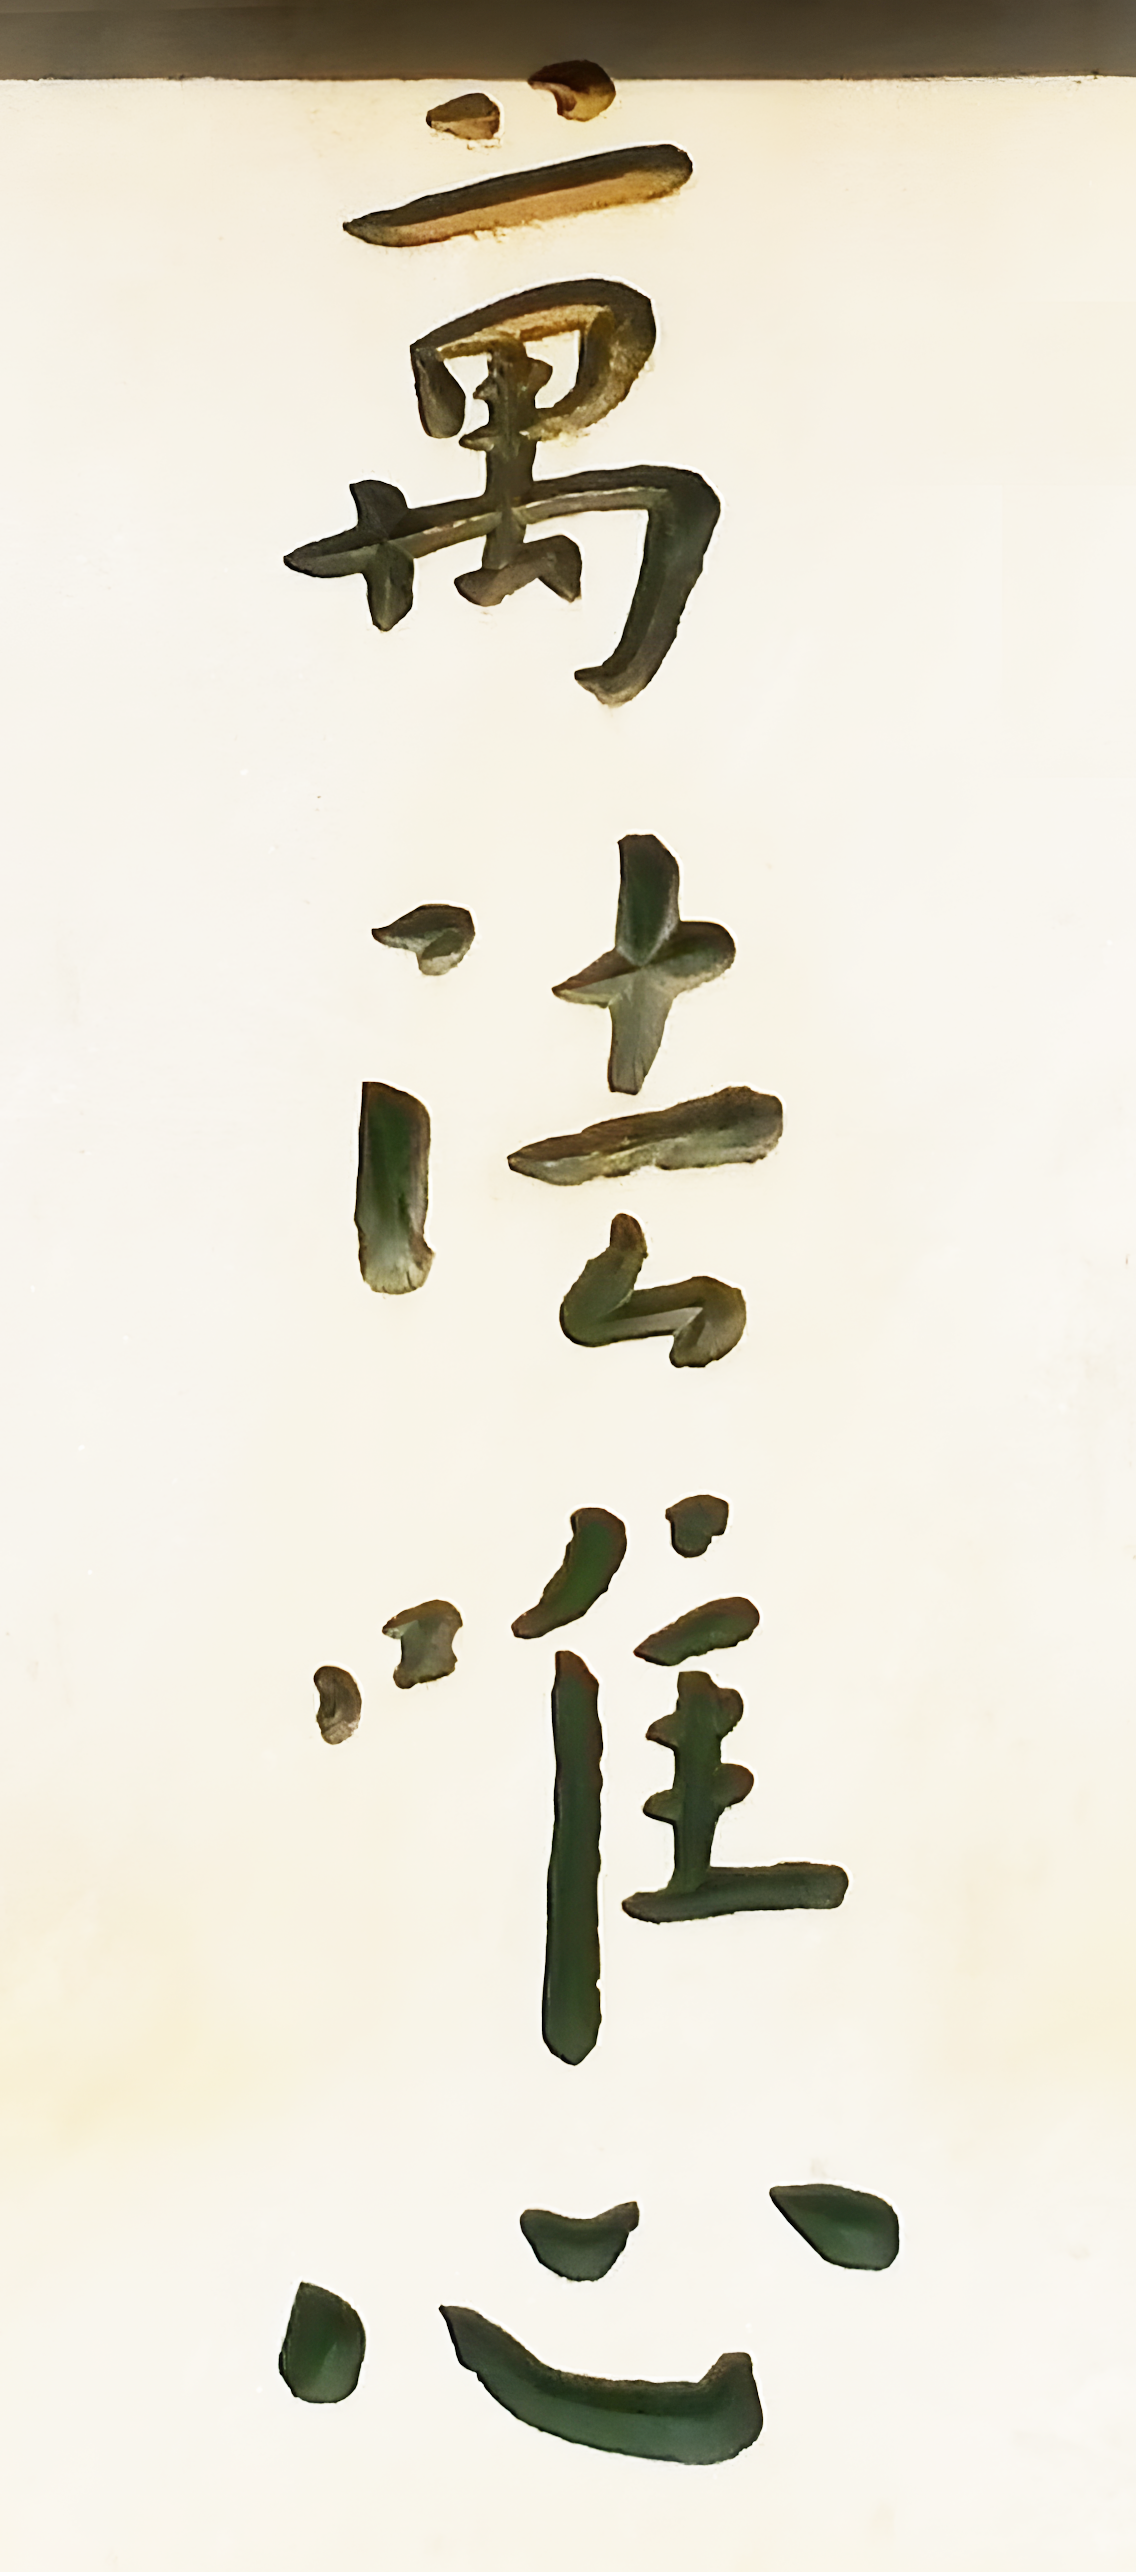 萬法唯心